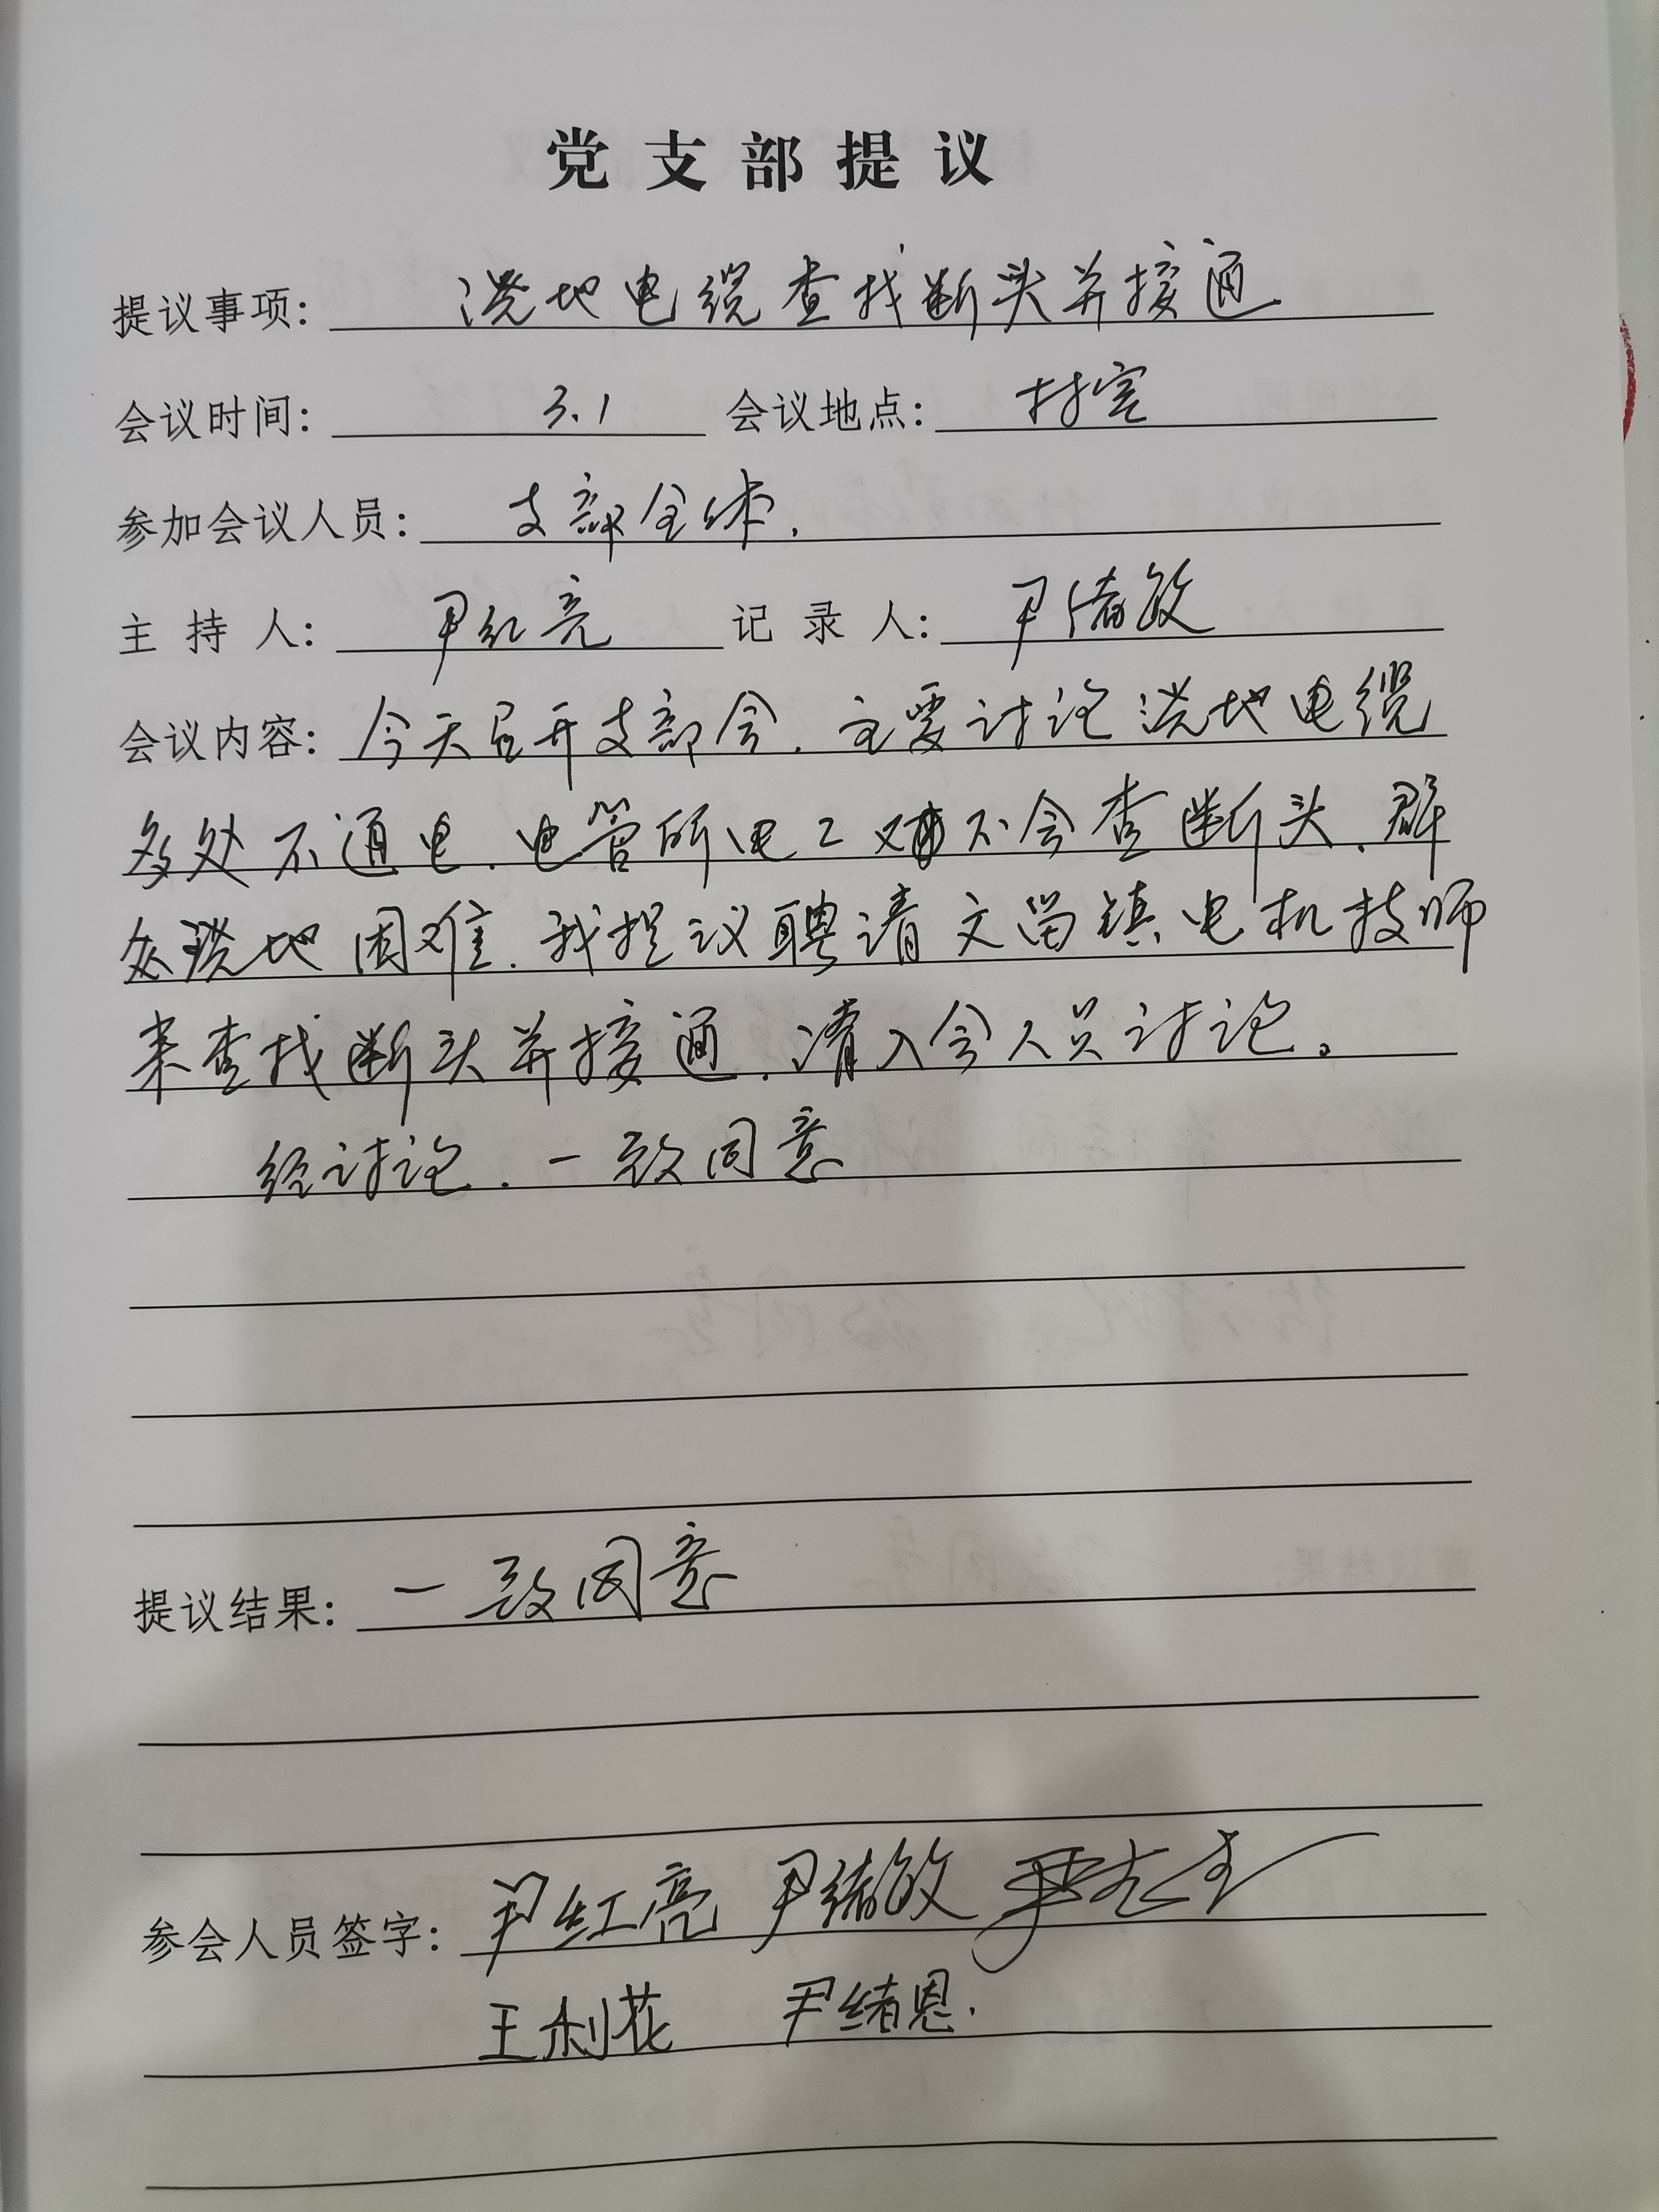 党支部提议
提议事项: 浇地电缆查找断头并接通
会议时间: 3.1 会议地点: 村室
参加会议人员: 支部全体.
主持人: 尹红亮 记录人: 尹绪敏
会议内容: 今天召开支部会.主要讨论浇地电缆
多处不通电.电管所电工又不会查断头.群
众浇地困难.我提议聘请文留镇电机技师
来查找断头并接通.请入会人员讨论。
经讨论.一致同意
提议结果: 一致同意
参会人员签字: 尹红亮 尹绪敏
王利花 尹绪恩.